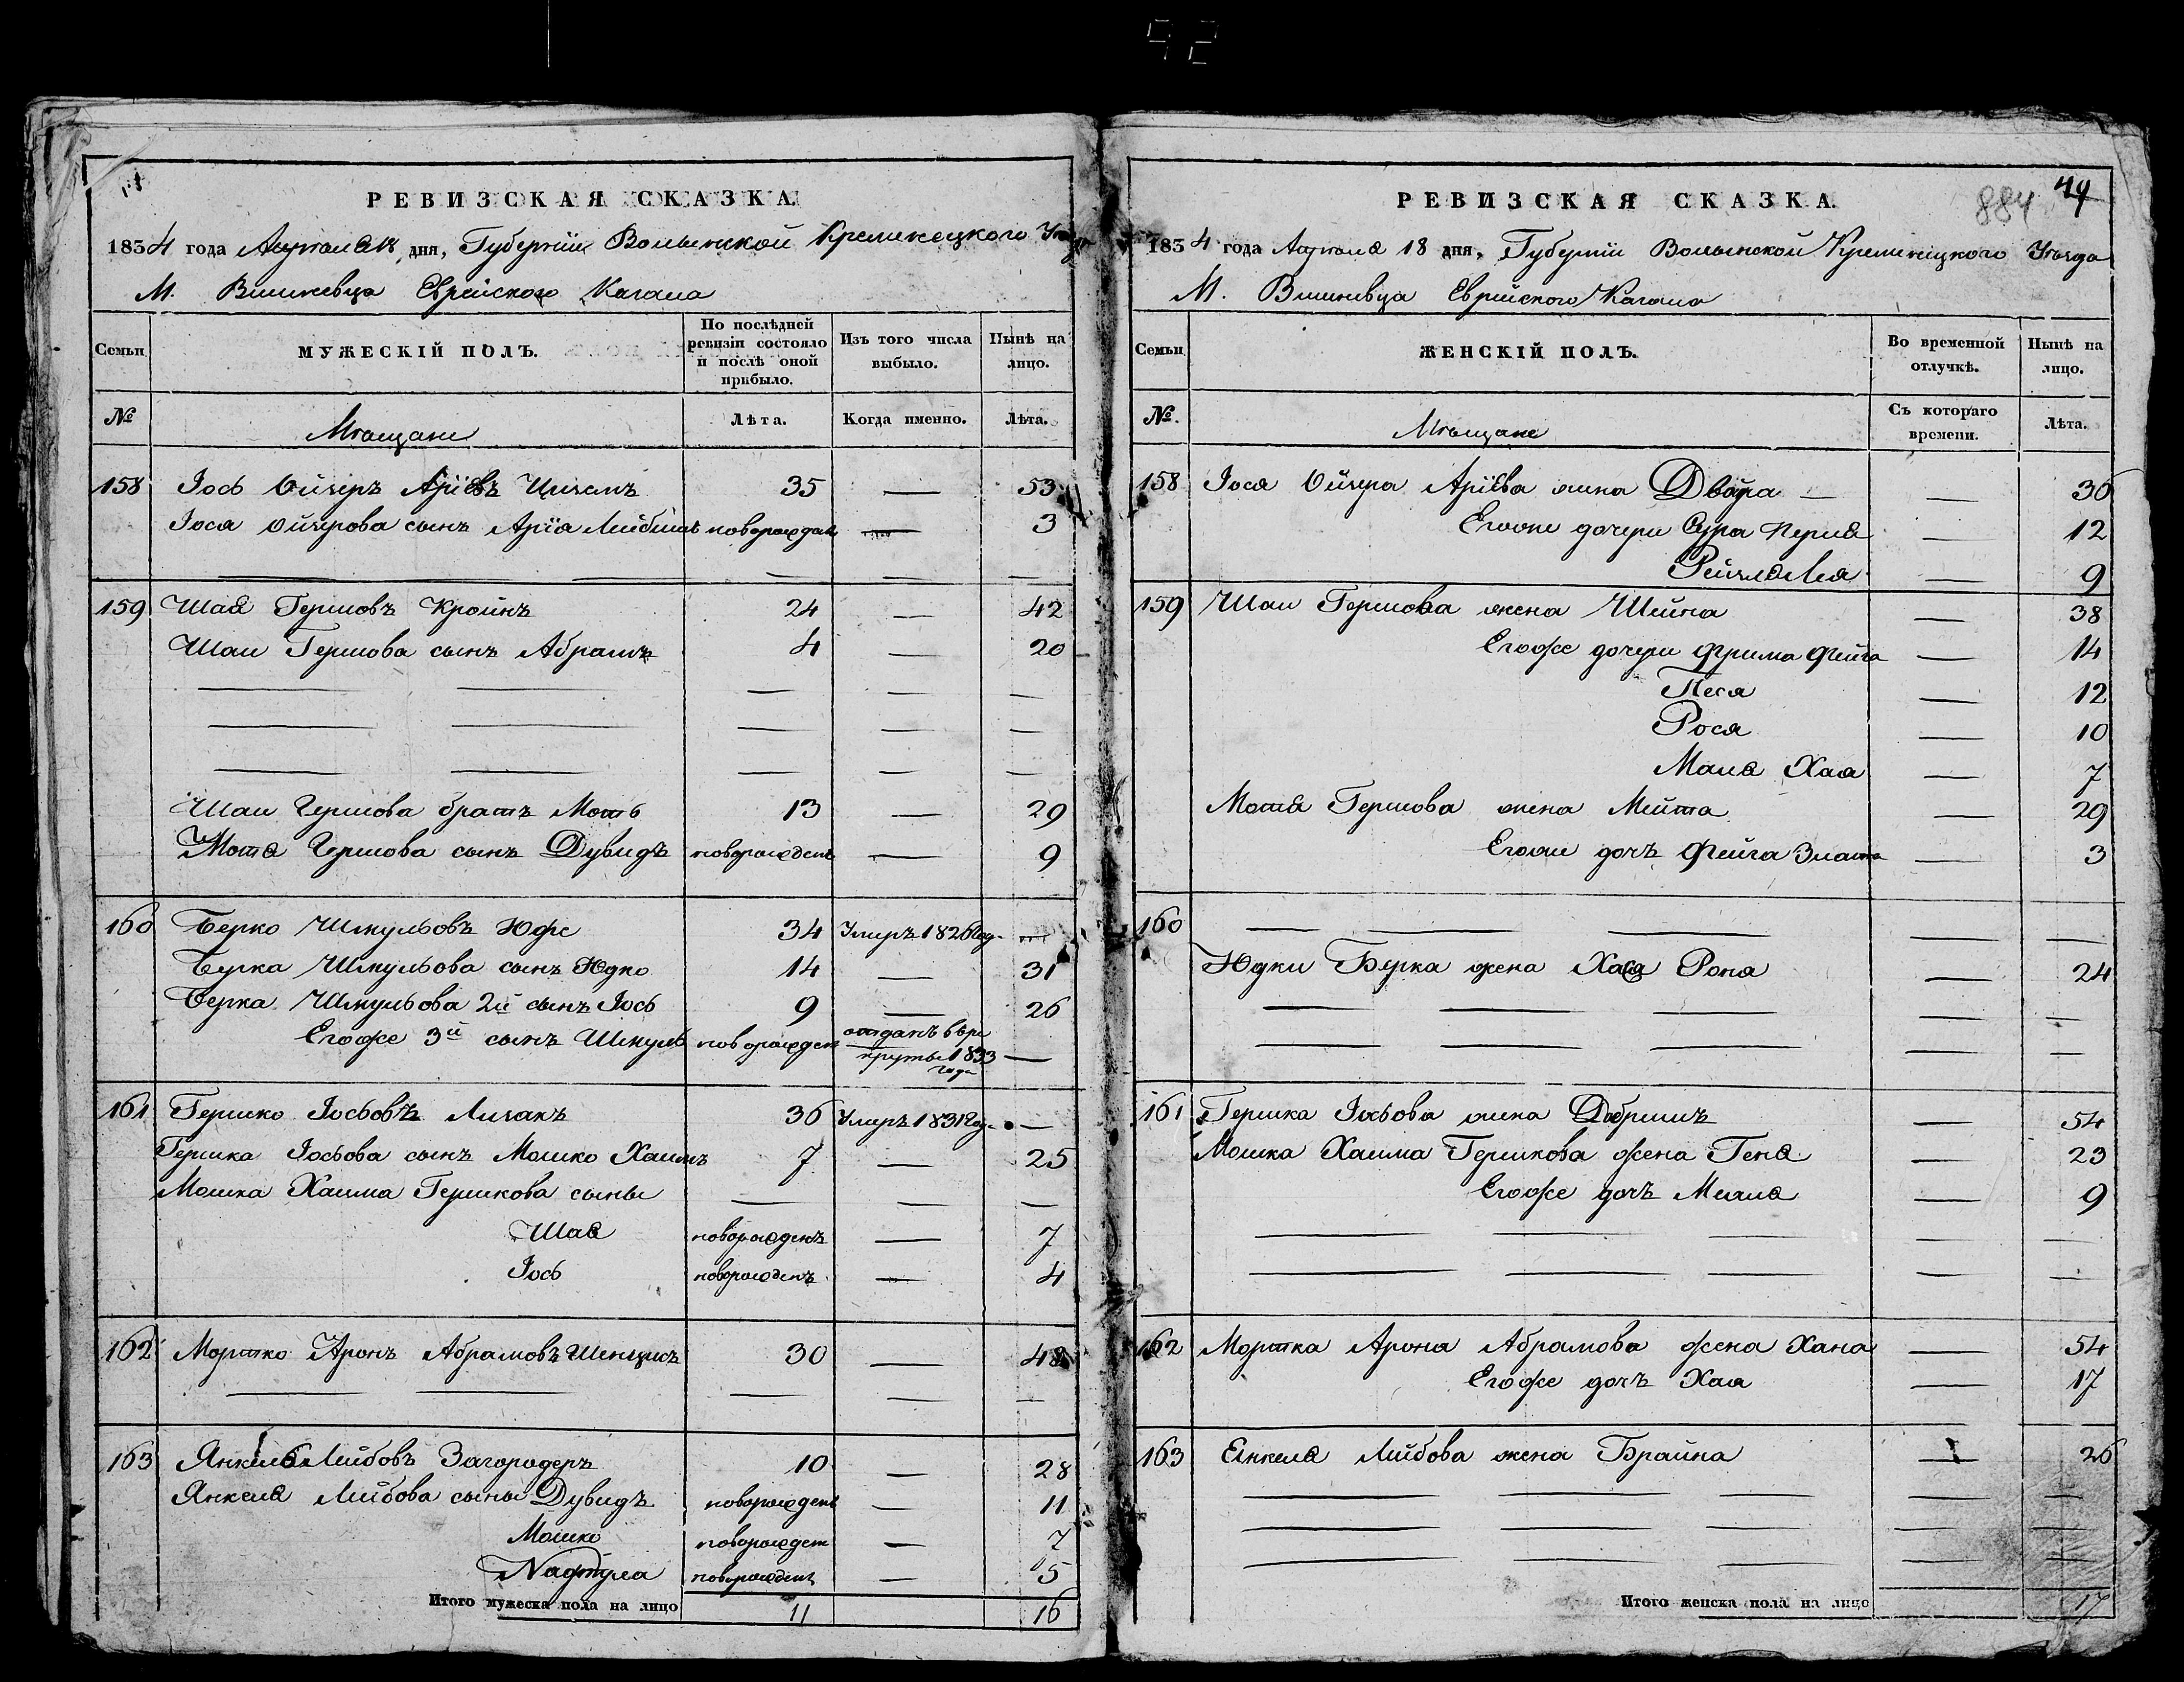 РЕВИЗСКАЯ СКАЗКА
1834 года дня, Губернiи Волынской Кременецкого Уезда
М. Вишневца Еврейского Кагала
Семьи
МУЖЕСКIЙ ПОЛЪ.
По послѣдней ревизiи состояло и послѣ оной прибыло.
Изъ того числа выбыло.
Нынѣ на лицо.
№
Мѣщане
Лѣта.
Когда именно.
Лѣта.
158 Iось Ойзеръ Арiевъ 35 — 53
Iося Ойзерова сынъ Арiя Лейбишъ новорожденъ — 3
159 Шая Гершовъ Кройнъ 24 — 42
Шаи Гершова сынъ Абрамъ 4 — 20
Шаи Гершова братъ Моть 13 — 29
Мотя Гершова сынъ Дувидъ новорожденъ — 9
160 Берко Шмульовъ Юфе 34 Умеръ 1826 год. —
Берка Шмульова сынъ Юдко 14 — 31
Берка Шмульова 2й сынъ Iось 9 — 26
Егоже 3й сынъ Шмуль новорожден отданъ в рекруты 1833 года —
161 Гершко Iосьовъ 36 Умеръ 1831 год. —
Гершка Iосьова сынъ Мошко Хаимъ 7 — 25
Мошка Хаима Гершкова сыны — — —
Шая новорожденъ — 7
Iось новорожденъ — 4
162 Мортко Аронъ Абрамовъ 30 — 48
163 Янкель Лейбовъ Загородеръ 10 — 28
Янкеля Лейбова сыны Дувидъ новорожденъ — 11
Мошко новорожден — 7
Нафтула новорожденъ — 5
Итого мужеска пола на лицо 11 16
РЕВИЗСКАЯ СКАЗКА.
884 44
1834 года 18 дня, Губернiи Волынской Кременецкого Уезда
М. Вишневца Еврейского Кагала
Семьи
ЖЕНСКIЙ ПОЛЪ.
Во временной отлучкѣ.
Нынѣ на лицо.
№.
Мѣщане
Съ котораго времени.
Лѣта.
158 Iося Ойзера Арiева жена Двойра — 30
Егоже дочери Сура Перля — 12
Рейзля Лея — 9
159 Шаи Гершова жена Шейна — 38
Егоже дочери Фрима Фейга — 14
Песя — 12
Рося — 10
Маля Хая — 7
Мотя Гершова жена Мейта — 29
Егоже дочъ Фейга Злата — 3
160 — — — — —
Юдки Берка жена Хася Роня — 24
161 Гершка Iосьова жена Добришъ — 54
Мошка Хаима Гершкова жена Геня — 23
Егоже дочъ — 9
162 Мортка Арона Абрамова жена Хана — 54
Егоже дочъ Хая — 17
163 Янкеля Лейбова жена Брайна — 26
Итого женска пола на лицо 17